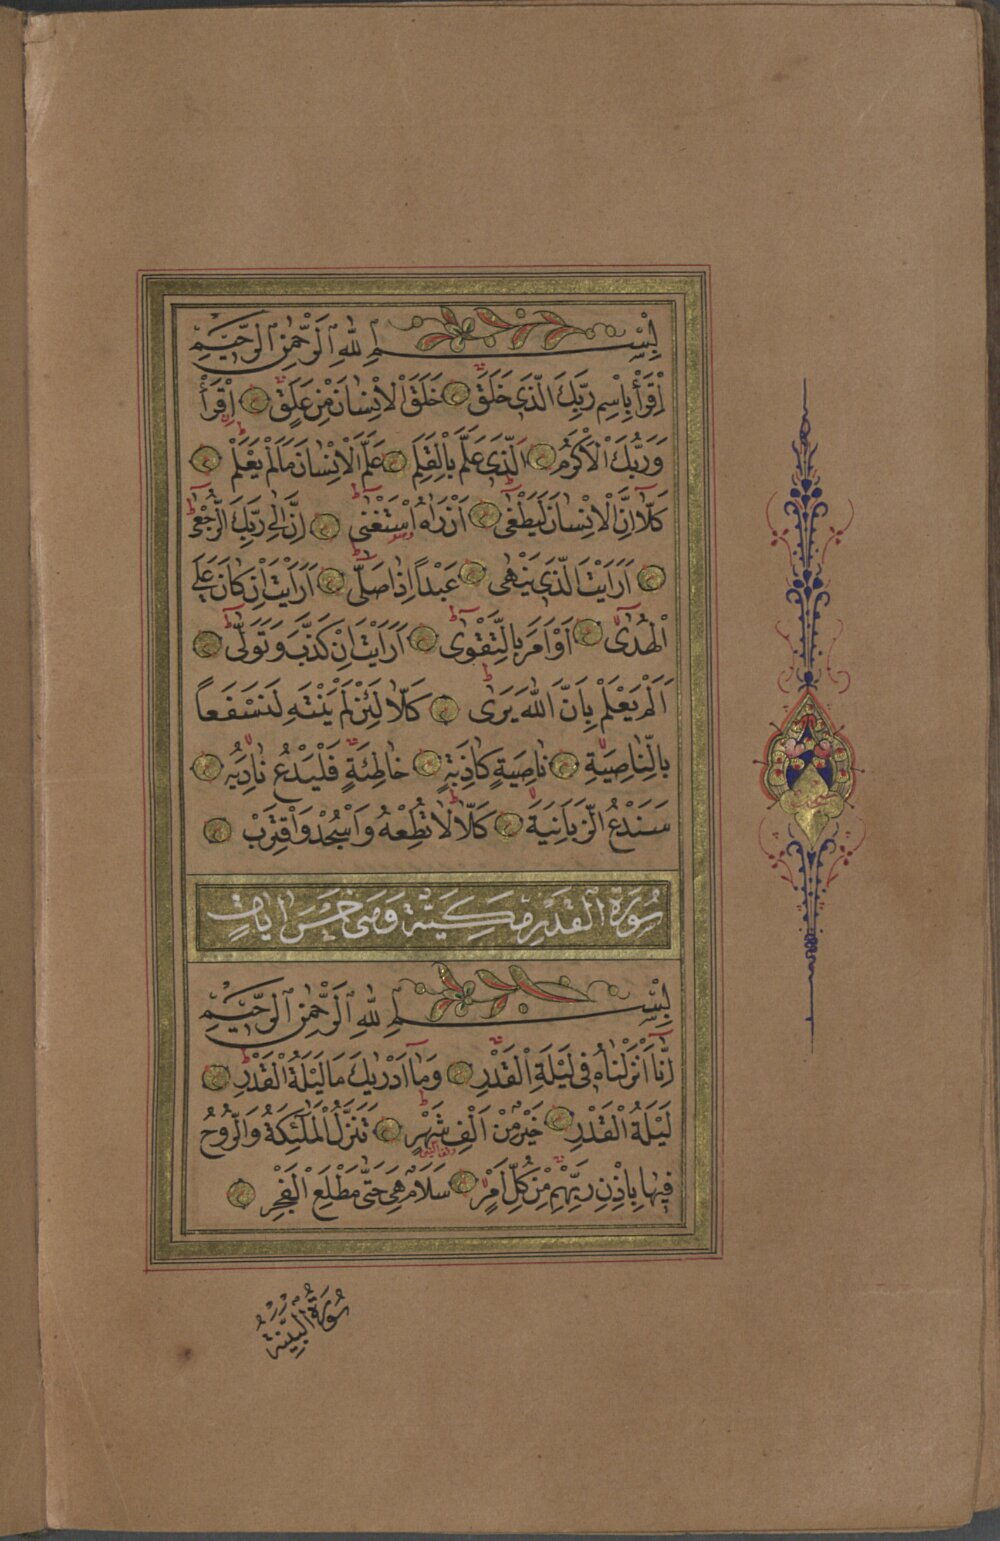 بِسْمِ اللهِ الرَّحْمٰنِ الرَّحِيمِ
اِقْرَأْ بِاسْمِ رَبِّكَ الَّذِى خَلَقَ خَلَقَ الْاِنْسَانَ مِنْ عَلَقٍ اِقْرَأْ
وَرَبُّكَ الْاَكْرَمُ الَّذِى عَلَّمَ بِالْقَلَمِ عَلَّمَ الْاِنْسَانَ مَا لَمْ يَعْلَمْ
كَلَّا اِنَّ الْاِنْسَانَ لَيَطْغٰى اَنْ رَاٰهُ اسْتَغْنٰى اِنَّ اِلٰى رَبِّكَ الرُّجْعٰى
اَرَاَيْتَ الَّذِى يَنْهٰى عَبْدًا اِذَا صَلّٰى اَرَاَيْتَ اِنْ كَانَ عَلَى
الْهُدٰى اَوْ اَمَرَ بِالتَّقْوٰى اَرَاَيْتَ اِنْ كَذَّبَ وَتَوَلّٰى
اَلَمْ يَعْلَمْ بِاَنَّ اللهَ يَرٰى كَلَّا لَئِنْ لَمْ يَنْتَهِ لَنَسْفَعًا
بِالنَّاصِيَةِ نَاصِيَةٍ كَاذِبَةٍ خَاطِئَةٍ فَلْيَدْعُ نَادِيَهُ
سَنَدْعُ الزَّبَانِيَةَ كَلَّا لَا تُطِعْهُ وَاسْجُدْ وَاقْتَرِبْ
سُورَةُ الْقَدْرِ مَكِّيَّةٌ وَهِىَ خَمْسُ اٰيَاتٍ
بِسْمِ اللهِ الرَّحْمٰنِ الرَّحِيمِ
اِنَّا اَنْزَلْنَاهُ فِى لَيْلَةِ الْقَدْرِ وَمَا اَدْرٰيكَ مَا لَيْلَةُ الْقَدْرِ
لَيْلَةُ الْقَدْرِ خَيْرٌ مِنْ اَلْفِ شَهْرٍ تَنَزَّلُ الْمَلٰئِكَةُ وَالرُّوحُ
فِيهَا بِاِذْنِ رَبِّهِمْ مِنْ كُلِّ اَمْرٍ سَلَامٌ هِىَ حَتّٰى مَطْلَعِ الْفَجْرِ
سُورَةُ الْبَيِّنَةِ